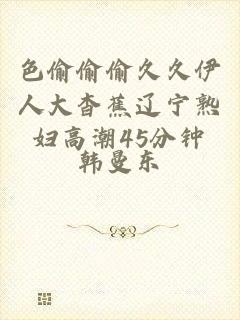 色偷偷偷久久伊
人大杳蕉辽宁熟
妇高潮45分钟
韩曼东